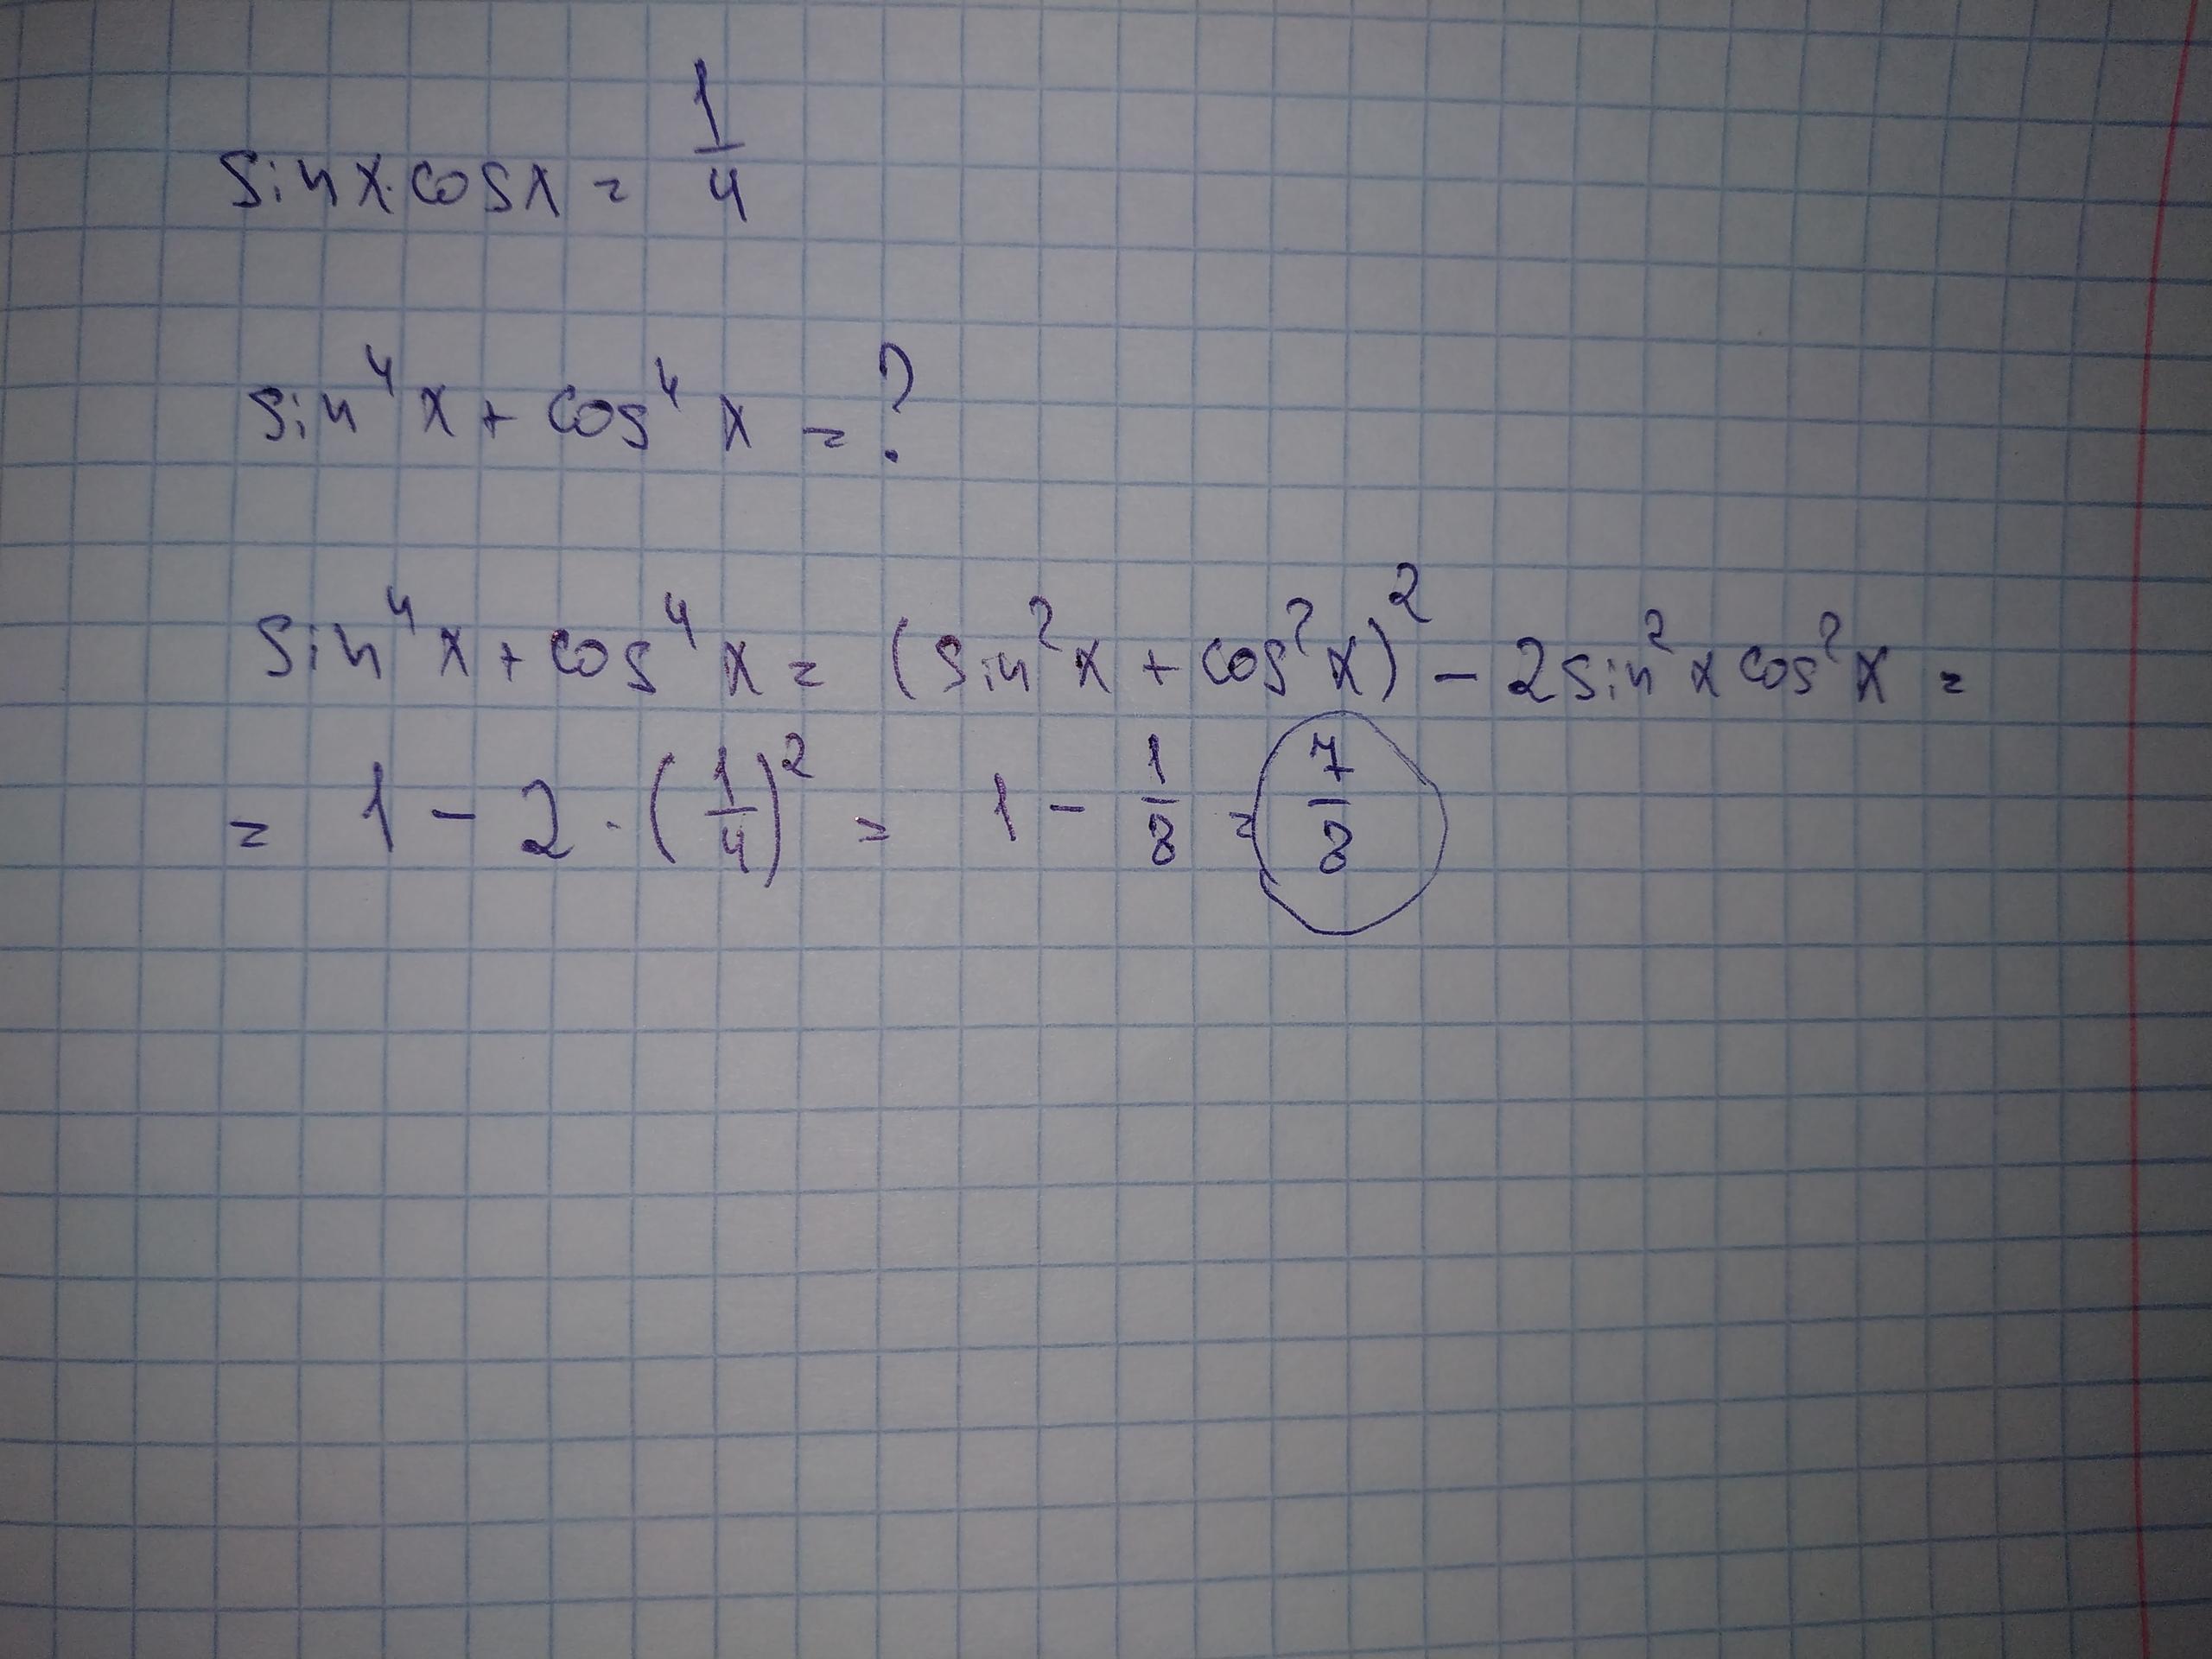 sin x · cos x = 1/4
sin⁴x + cos⁴x = ?
sin⁴x + cos⁴x = (sin²x + cos²x)² - 2sin²x cos²x =
= 1 - 2 · (1/4)² = 1 - 1/8 = 7/8